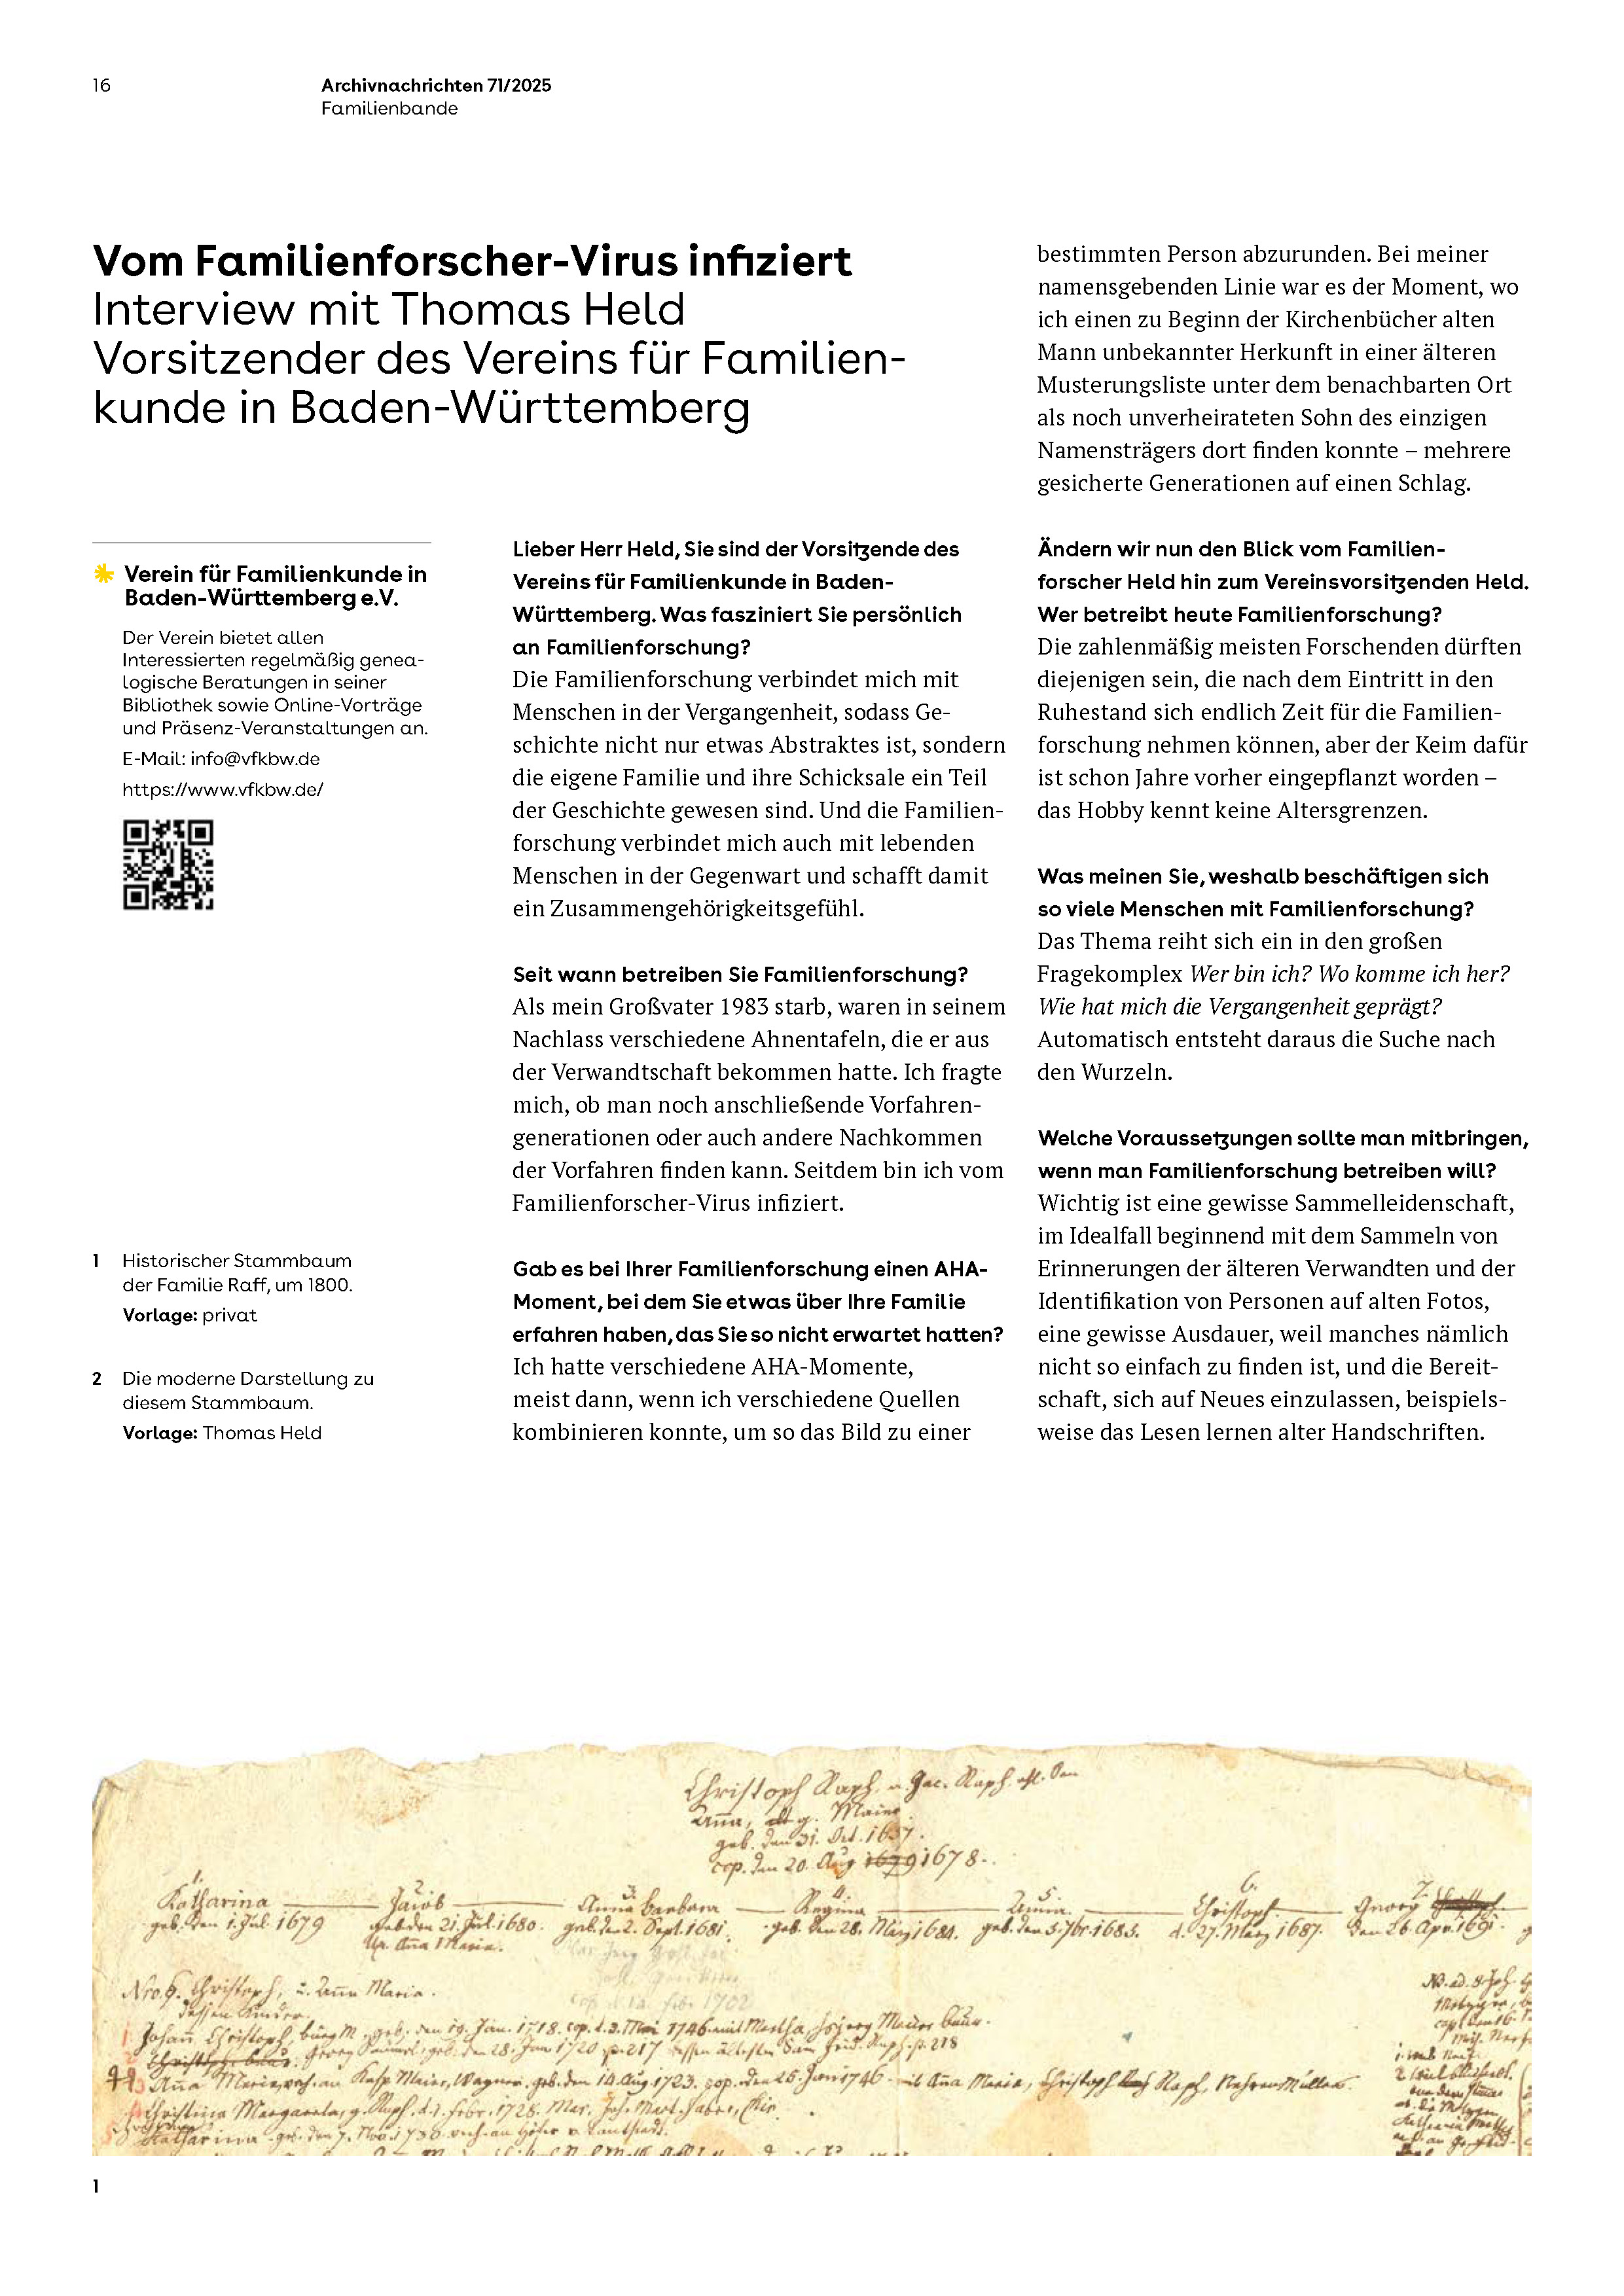 16
Archivnachrichten 71/2025
Familienbande
Vom Familienforscher-Virus infiziert
Interview mit Thomas Held
Vorsitzender des Vereins für Familien-
kunde in Baden-Württemberg
Verein für Familienkunde in
Baden-Württemberg e.V.
Der Verein bietet allen
Interessierten regelmäßig genea-
logische Beratungen in seiner
Bibliothek sowie Online-Vorträge
und Präsenz-Veranstaltungen an.
E-Mail: info@vfkbw.de
https://www.vfkbw.de/
1 Historischer Stammbaum
der Familie Raff, um 1800.
Vorlage: privat
2 Die moderne Darstellung zu
diesem Stammbaum.
Vorlage: Thomas Held
Lieber Herr Held, Sie sind der Vorsitzende des
Vereins für Familienkunde in Baden-
Württemberg. Was fasziniert Sie persönlich
an Familienforschung?
Die Familienforschung verbindet mich mit
Menschen in der Vergangenheit, sodass Ge-
schichte nicht nur etwas Abstraktes ist, sondern
die eigene Familie und ihre Schicksale ein Teil
der Geschichte gewesen sind. Und die Familien-
forschung verbindet mich auch mit lebenden
Menschen in der Gegenwart und schafft damit
ein Zusammengehörigkeitsgefühl.
Seit wann betreiben Sie Familienforschung?
Als mein Großvater 1983 starb, waren in seinem
Nachlass verschiedene Ahnentafeln, die er aus
der Verwandtschaft bekommen hatte. Ich fragte
mich, ob man noch anschließende Vorfahren-
generationen oder auch andere Nachkommen
der Vorfahren finden kann. Seitdem bin ich vom
Familienforscher-Virus infiziert.
Gab es bei Ihrer Familienforschung einen AHA-
Moment, bei dem Sie etwas über Ihre Familie
erfahren haben, das Sie so nicht erwartet hatten?
Ich hatte verschiedene AHA-Momente,
meist dann, wenn ich verschiedene Quellen
kombinieren konnte, um so das Bild zu einer
bestimmten Person abzurunden. Bei meiner
namensgebenden Linie war es der Moment, wo
ich einen zu Beginn der Kirchenbücher alten
Mann unbekannter Herkunft in einer älteren
Musterungsliste unter dem benachbarten Ort
als noch unverheirateten Sohn des einzigen
Namensträgers dort finden konnte – mehrere
gesicherte Generationen auf einen Schlag.
Ändern wir nun den Blick vom Familien-
forscher Held hin zum Vereinsvorsitzenden Held.
Wer betreibt heute Familienforschung?
Die zahlenmäßig meisten Forschenden dürften
diejenigen sein, die nach dem Eintritt in den
Ruhestand sich endlich Zeit für die Familien-
forschung nehmen können, aber der Keim dafür
ist schon Jahre vorher eingepflanzt worden –
das Hobby kennt keine Altersgrenzen.
Was meinen Sie, weshalb beschäftigen sich
so viele Menschen mit Familienforschung?
Das Thema reiht sich ein in den großen
Fragekomplex Wer bin ich? Wo komme ich her?
Wie hat mich die Vergangenheit geprägt?
Automatisch entsteht daraus die Suche nach
den Wurzeln.
Welche Voraussetzungen sollte man mitbringen,
wenn man Familienforschung betreiben will?
Wichtig ist eine gewisse Sammelleidenschaft,
im Idealfall beginnend mit dem Sammeln von
Erinnerungen der älteren Verwandten und der
Identifikation von Personen auf alten Fotos,
eine gewisse Ausdauer, weil manches nämlich
nicht so einfach zu finden ist, und die Bereit-
schaft, sich auf Neues einzulassen, beispiels-
weise das Lesen lernen alter Handschriften.
Christoph Raph. Jac. Raph.
Anna, Maier
geb. den 31. Oct. 1657.
cop. den 20. Aug 1678.
1. 2. 3. 4. 5. 6. 7.
Katharina Jacob Anna Barbara Regina Anna Christoph Georg
geb. den 1. Jul. 1679 geb. den 21. Jul. 1680. geb. den 2. Sept. 1681. geb. den 28. März 1684. geb. den 1685. d. 27. März 1687. den 26. Apr. 1691.
Anna Maria.
1702
Nro. 6. Christoph, Anna Maria.
dessen Kinder
1. Johann Christoph, geb. den 19. Jan. 1718. cop. d. 3. Mai 1746 mit Martha
geb. den 28. Jan 1720 p. 217 p. 218
Anna Maria, Maier, Wagner. geb. den 14. Aug. 1723. cop. den 25. Jan 1746 Anna Maria, Christoph Raph,
Christina Margareta, Febr. 1728.
Katharina geb. den 7. Nov. 1730.
1